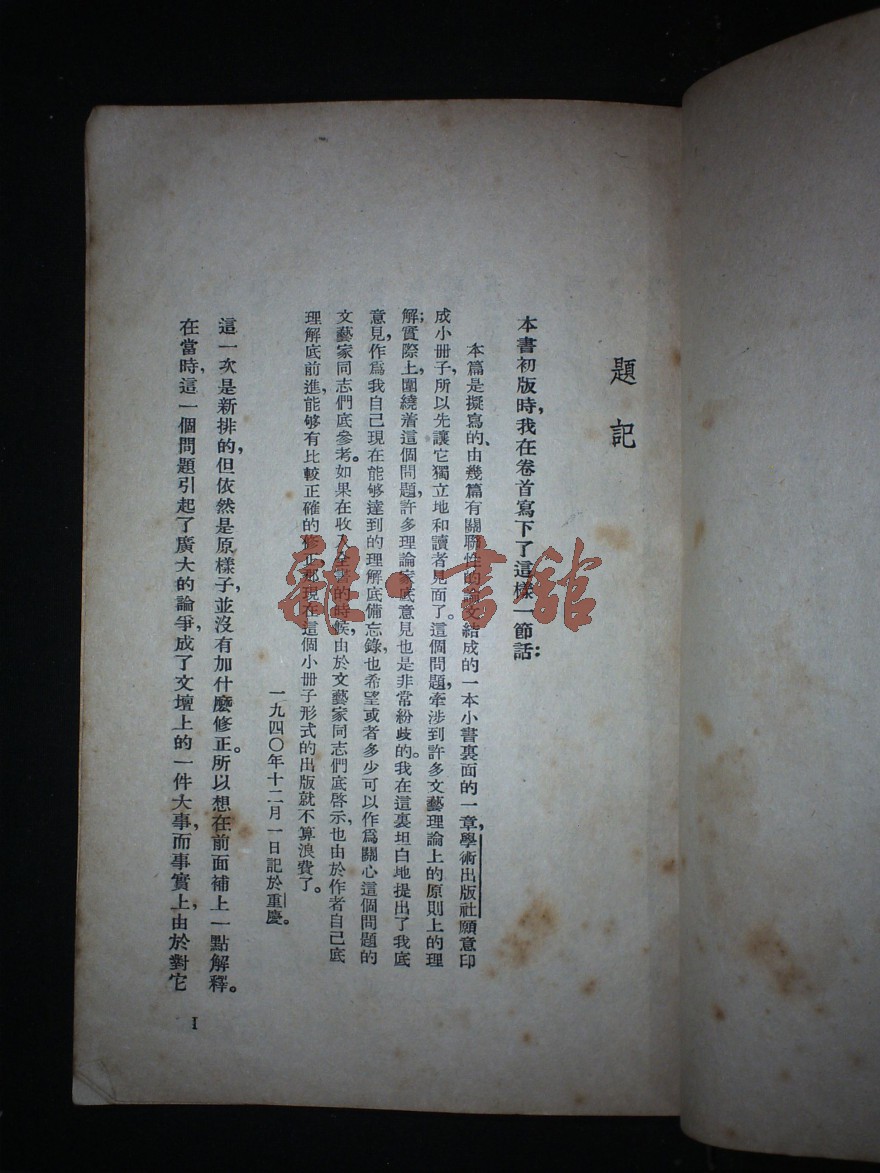 題記
本書初版時，我在卷首寫下了這樣一節話：
本篇是擬寫的、由幾篇有關聯性的論文結成的一本小書裏面的一章，學術出版社願意印
成小册子，所以先讓它獨立地和讀者見面了。這個問題，牽涉到許多文藝理論上的原則上的理
解；實際上，圍繞着這個問題，許多理論家底意見也是非常紛歧的。我在這裏坦白地提出了我底
意見，作爲我自己現在能够達到的理解底備忘錄，也希望或者多少可以作爲關心這個問題的
文藝家同志們底參考。如果在收入全書的時候，由於文藝家同志們底啓示，也由於作者自己底
理解底前進，能够有比較正確的修正，那現在這個小册子形式的出版就不算浪費了。
一九四〇年十二月一日記於重慶。
這一次是新排的，但依然是原樣子，並沒有加什麼修正。所以想在前面補上一點解釋。
在當時，這一個問題引起了廣大的論爭，成了文壇上的一件大事，而事實上，由於對它
I
雜·書館